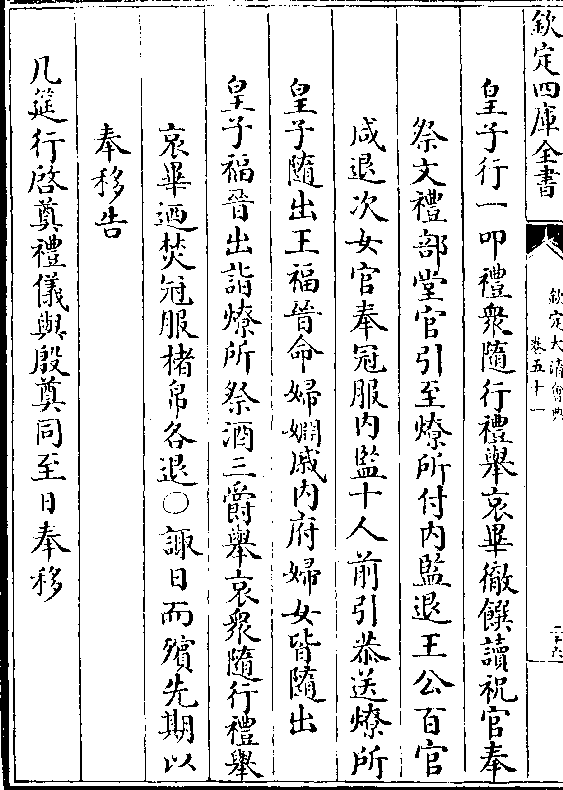 欽定四庫全書
欽定大清會典
卷五十一
皇子行一叩禮衆隨行禮舉哀畢徹饌讀祝官奉
祭文禮部堂官引至燎所付内監退王公百官
咸退次女官奉冠服内監十人前引恭送燎所
皇子隨出王福晉命婦嫺戚内府婦女皆隨出
皇子福晉出詣燎所祭酒三爵舉哀衆隨行禮舉
哀畢迺焚冠服楮帛各退○諏日而殯先期以
奉移告
几筵行啓奠禮儀與殷奠同至日奉移